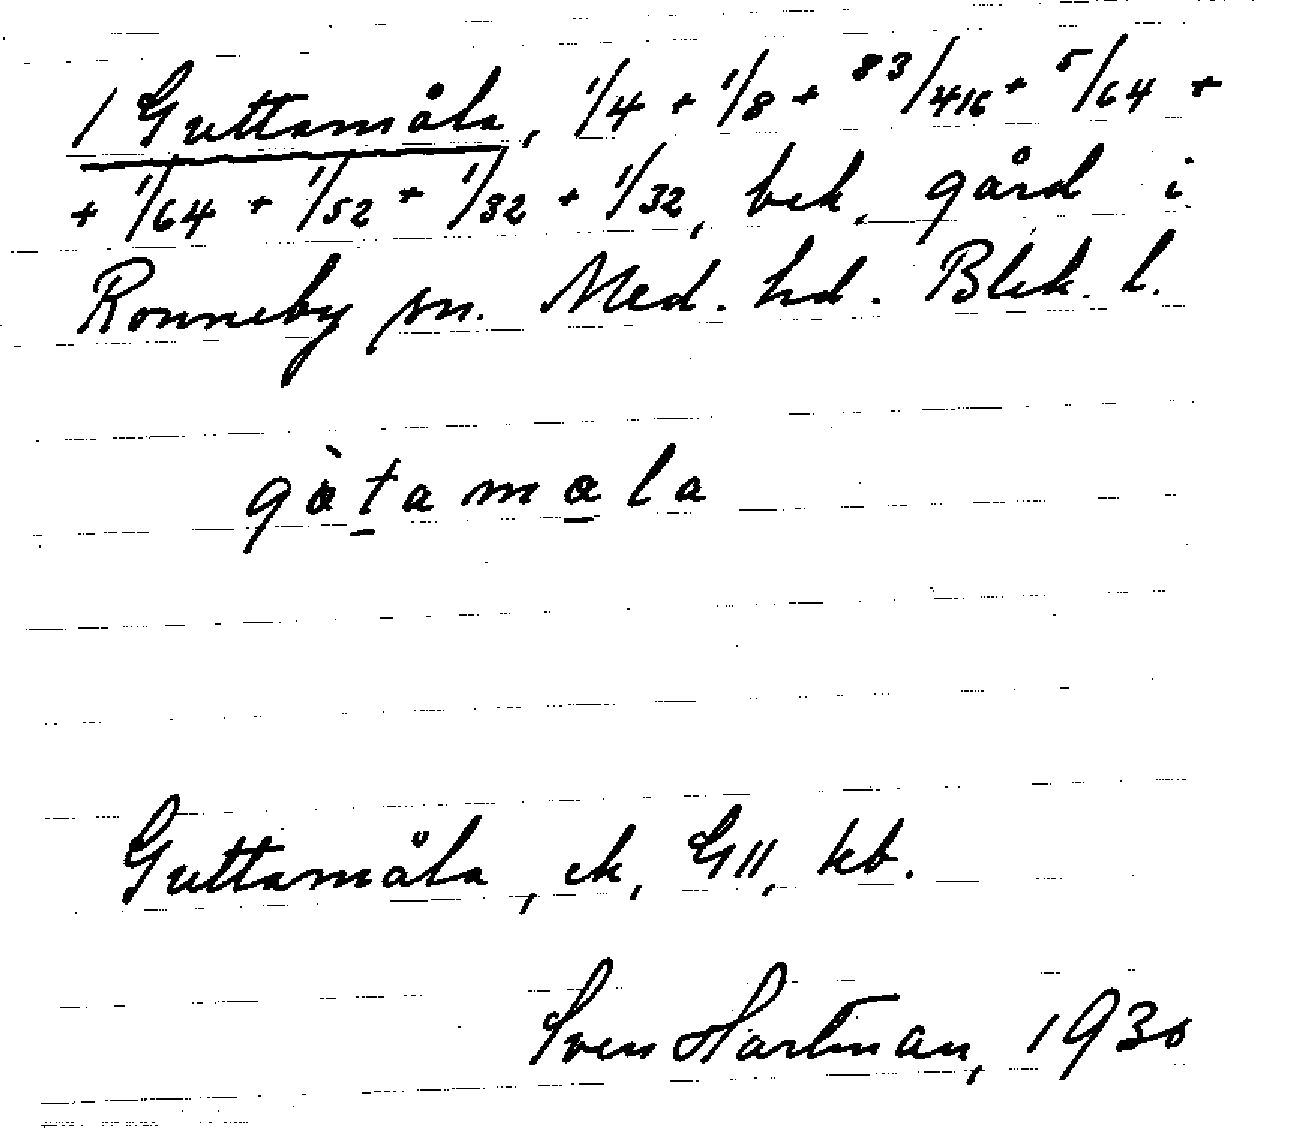 1 Guttamåla, 1/4 + 1/8 + 83/416 + 5/64 +
+ 1/64 + 1/52 + 1/32 + 1/32, bek. gård i
Ronneby sn. Med. hd. Blek. l.
gàt̲ama̲la
Guttamåla, ek, G11, kb.
Sven Hartman, 1930